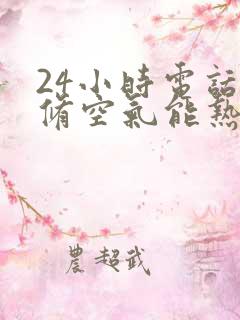 24小時電話
脩空氣能熱
農超武